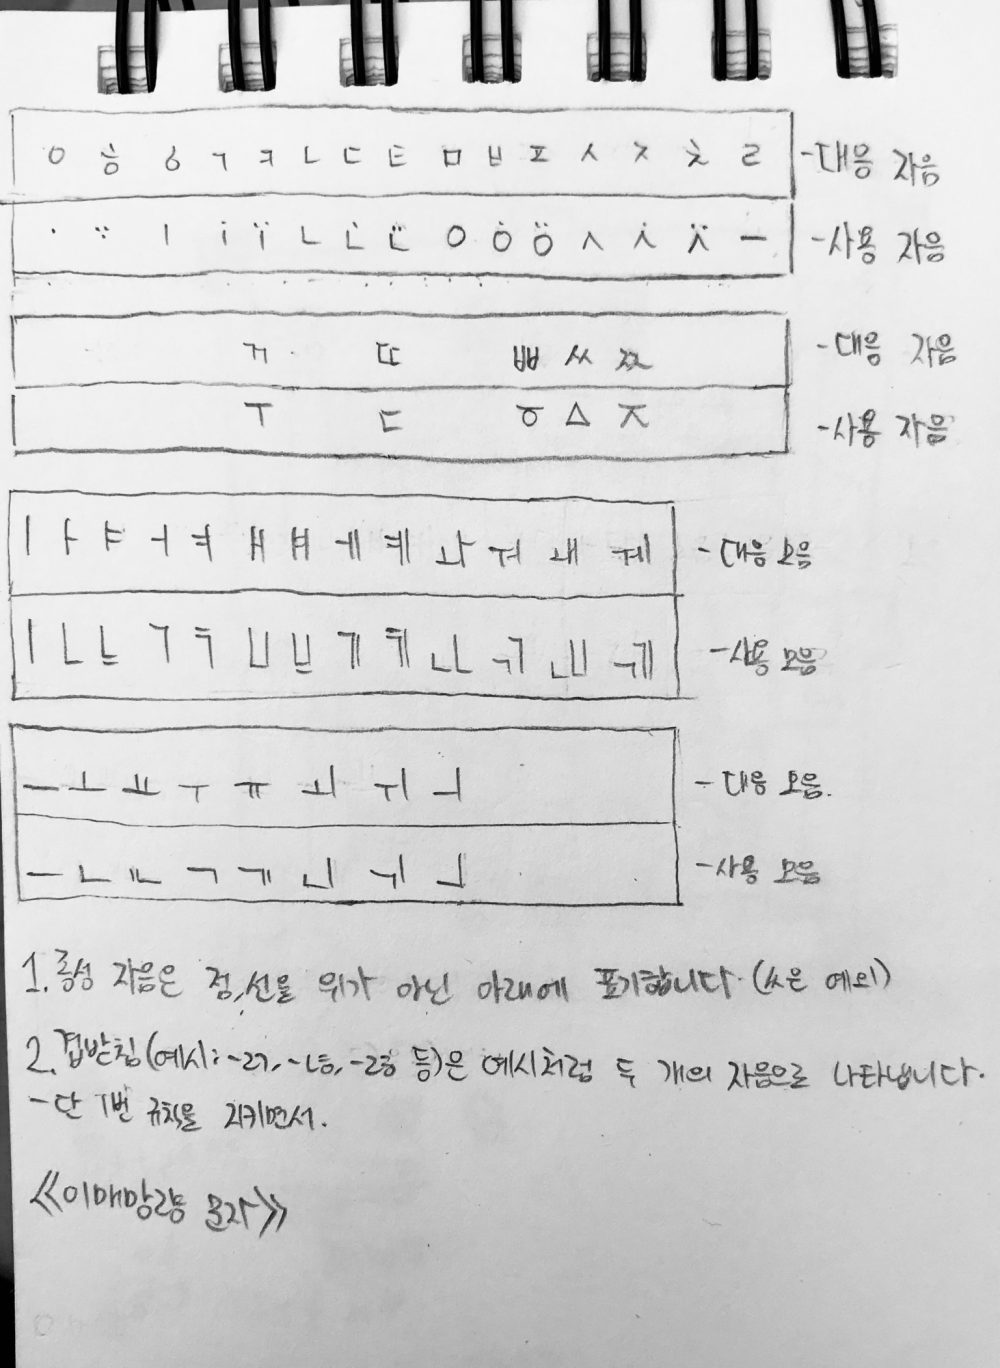 ㅇ ㅎ ㆁ ㄱ ㅋ ㄴ ㄷ ㅌ ㅁ ㅂ ㅍ ㅅ ㅈ ㅊ ㄹ - 대응 자음
- 사용 자음
ㄲ ㄸ ㅃ ㅆ ㅉ - 대응 자음
- 사용 자음
ㅣ ㅏ ㅑ ㅓ ㅕ ㅐ ㅒ ㅔ ㅖ ㅘ ㅝ ㅙ ㅞ - 대응 모음
- 사용 모음
ㅡ ㅗ ㅛ ㅜ ㅠ ㅚ ㅟ ㅢ - 대응 모음.
- 사용 모음
1. 종성 자음은 점,선을 위가 아닌 아래에 표기합니다. (ㅆ은 예외)
2. 겹받침(예시: -ㄹㄱ, -ㄴㅎ, -ㄹㅎ 등)은 예시처럼 두 개의 자음으로 나타냅니다.
- 단 1번 규칙을 지키면서.
《이매망량 문자》